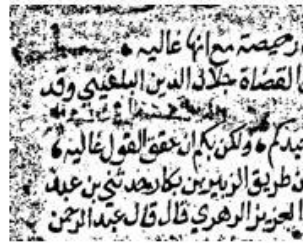 رخيصة مع انها غالية
القضاة جلال الدين البلقيني وقد
عندكم ولكن بكم ان عقق القول غالية
طريق الزبير بن بكار حدثني بن عبد
العزيز الزهري قال قال عبد الرحمن